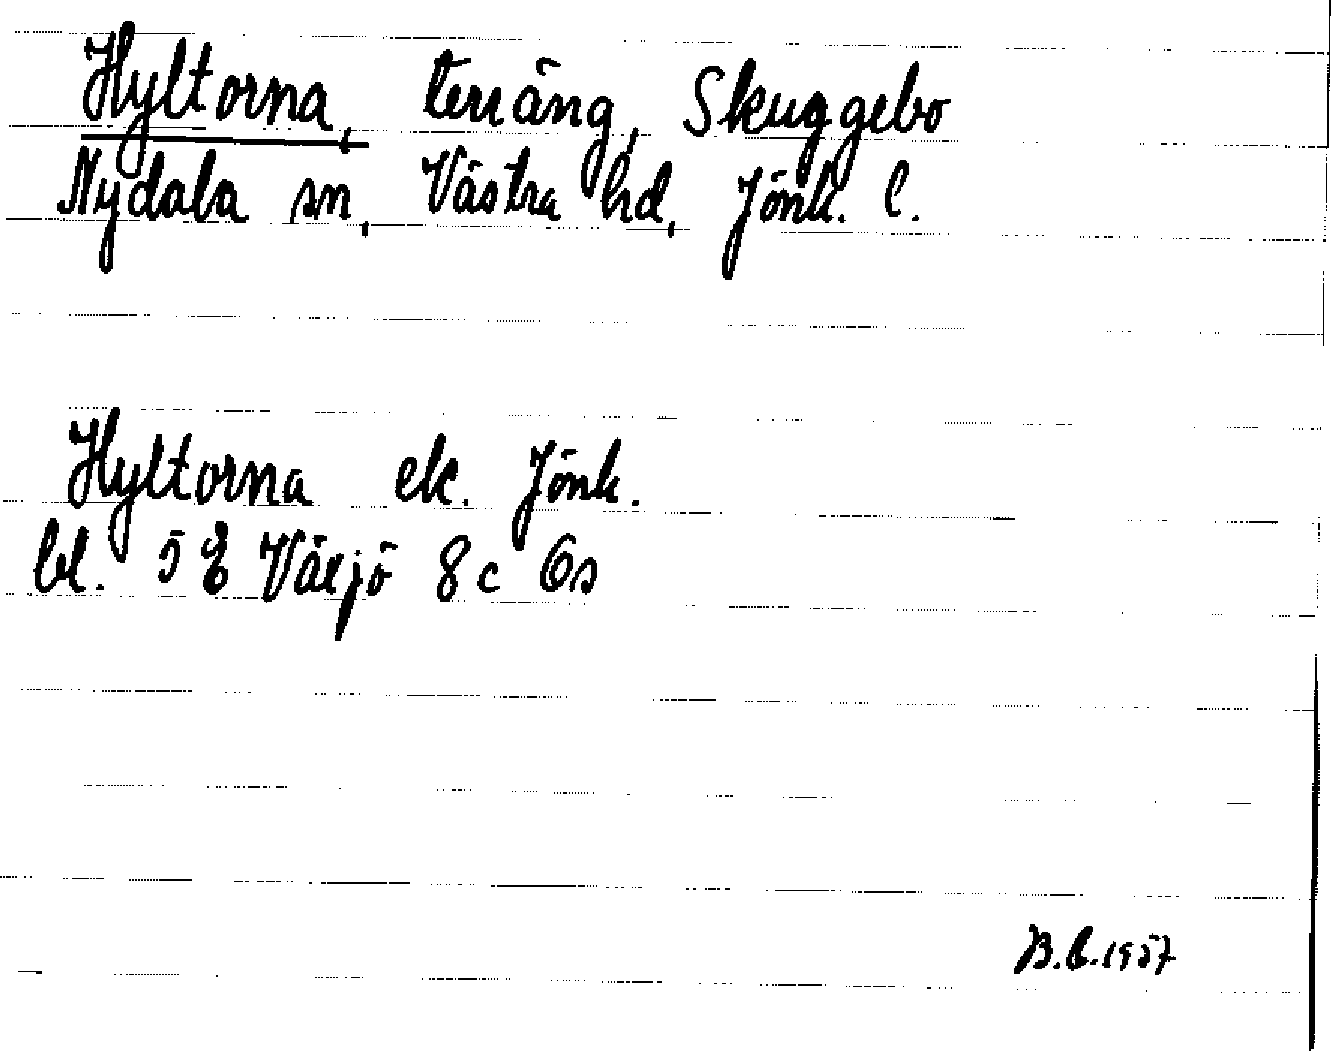 Hyltorna, terräng, Skuggebo
Nydala sn, Västra hd, Jönk. l.
Hyltorna ek. Jönk.
bl. 5 E Växjö 8c 6s
B.E. 1957